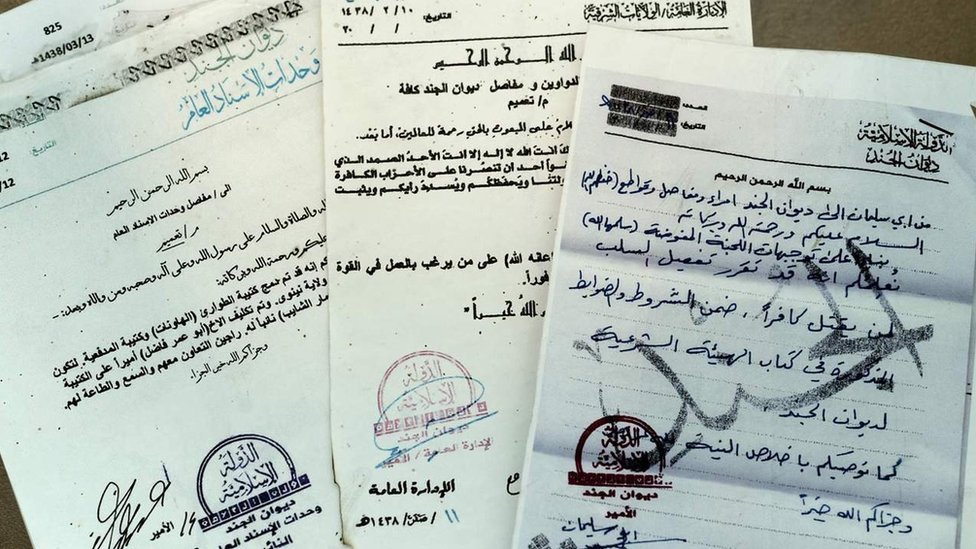 825
1438/03/13هـ
ديوان الجند
وحدات الإسناد العام
التاريخ:
بسم الله الرحمن الرحيم
الى / مفاصل وحدات الاسناد العام
م / تعميم
والصلاة والسلام على رسول الله وعلى آله وصحبه ومن والاه وبعد:-
عليكم ورحمة الله وبركاته:
إنه قد تم دمج كتيبة الطوارئ (الهاونات) وكتيبة المدفعية لتكون
ولاية نينوى. وتم تكليف الاخ (ابو عمر فاضل) أميراً على الكتيبة
نائباً له راجين التعاون معهم والسمع والطاعة لهم.
وجزاكم الله خير الجزاء.
الدولة الإسلامية
ديوان الجند
وحدات الإسناد العام
الأمير
الإدارة العامة/الولايات الشرقية
التاريخ:
١٤٣٨ / ٢ / ١٠
٢٠ / /
الله الرحمن الرحيم
الدواوين و مفاصل ديوان الجند كافة
م/ تعميم
على المبعوث بالحق رحمة للعالمين، أما بعد.
انت الله لا إله إلا انت الأحد الصمد الذي
أحد ان تنصرنا على الأحزاب الكافرة
ويحفظكم ويسدد رأيكم ويثبت
الله) على من يرغب بالعمل في القوة
فوراً.
الله خيراً"
الدولة الإسلامية
ديوان الجند
الإدارة العامة / الأمير
الإدارة العامة
١١ / صفر / ١٤٣٨هـ
الدولة الإسلامية
ديوان الجند
العدد:
التاريخ:
بسم الله الرحمن الرحيم
من ابي سليمان الى ديوان الجند امراء ومفاصل وقواطع (حفظهم الله)
السلام عليكم ورحمة الله وبركاته
بناءً على توجيهات اللجنة المفوضة (سلمها الله)
نعلمكم انه قد تقرر تفعيل السلب
لمن يقتل كافراً، ضمن الشروط والضوابط
المذكورة في كتاب الهيئة الشرعية
لديوان الجند
كما نوصيكم باخلاص النية
وجزاكم الله خيراً
الدولة الإسلامية
ديوان الجند
الأمير
ابو سليمان